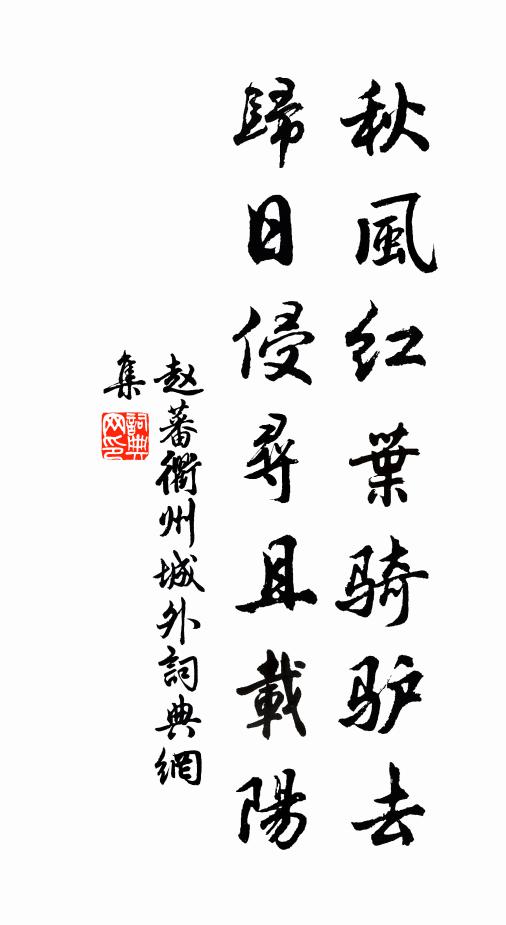 秋風红葉骑驴去
歸日侵尋且載陽
赵蕃衢州城外詞典網
集
詞典网印